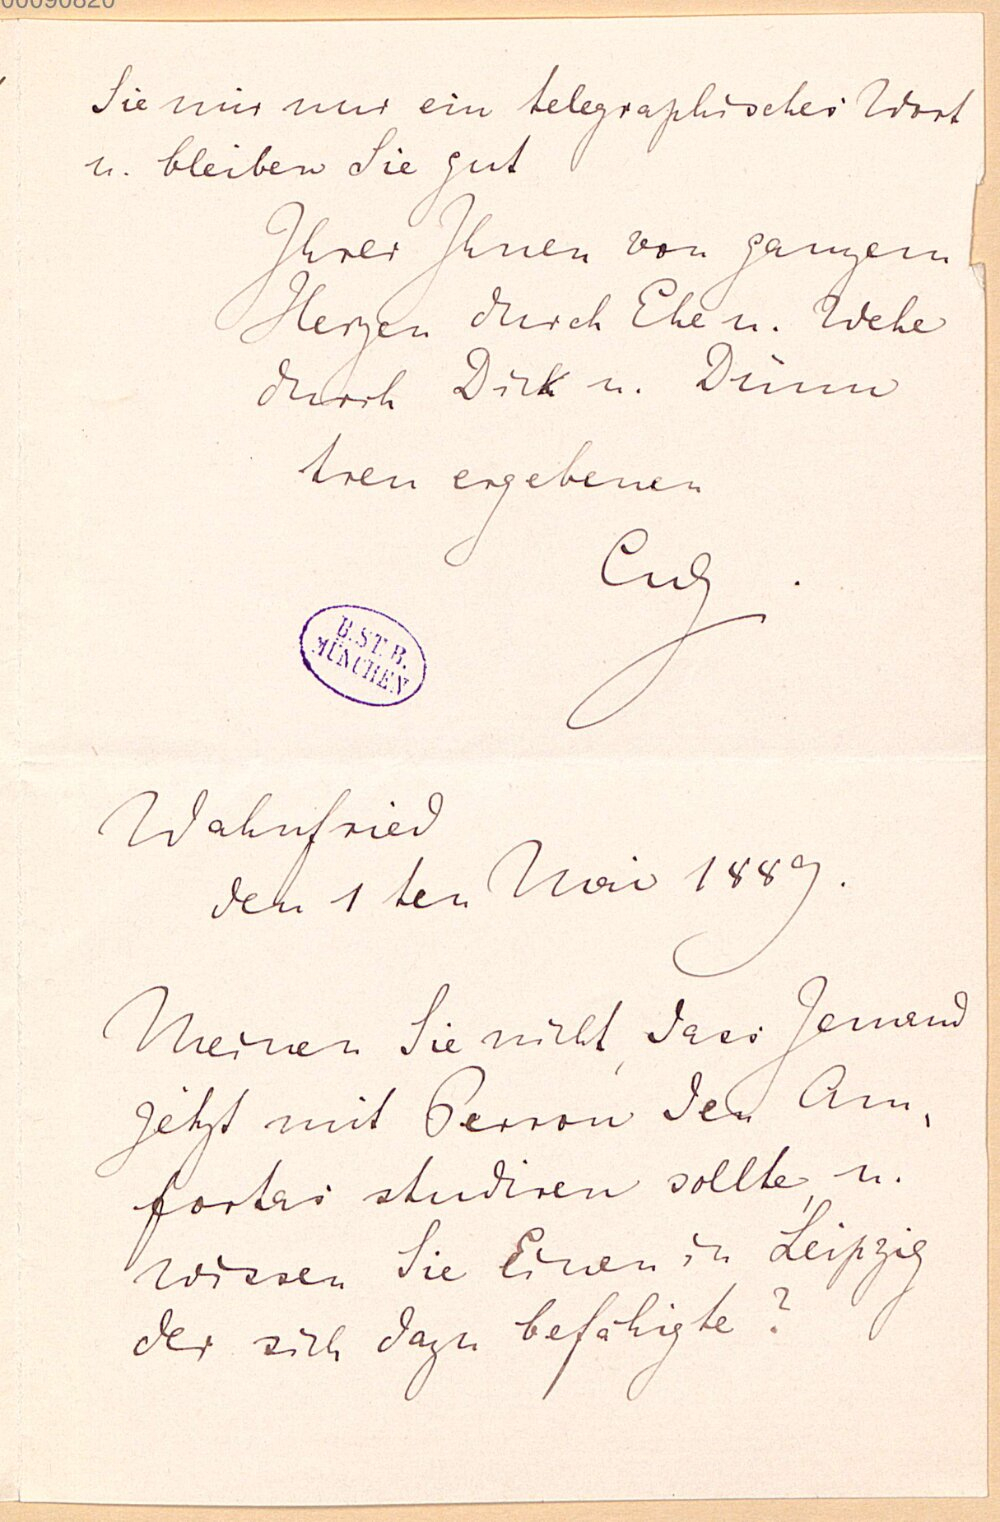 00090820
Sie mir nur ein telegraphisches Wort
u. bleiben Sie gut
Ihrer Ihnen von ganzem
Herzen durch Ehe u. Wehe
durch Dick u. Dünn
treu ergebenen
B.ST.B.
MÜNCHEN
Wahnfried
den 1ten Mai 1889.
Meinen Sie nicht, dass Jemand
jetzt mit Perron den Am,
fortas studiren sollte, u.
wissen Sie Einen in Leipzig
der sich dazu befähigte?